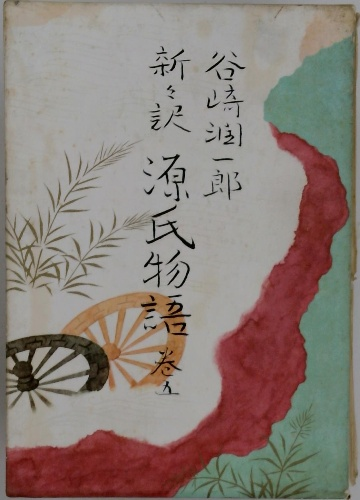 谷崎潤一郎
新々訳
源氏物語
巻五